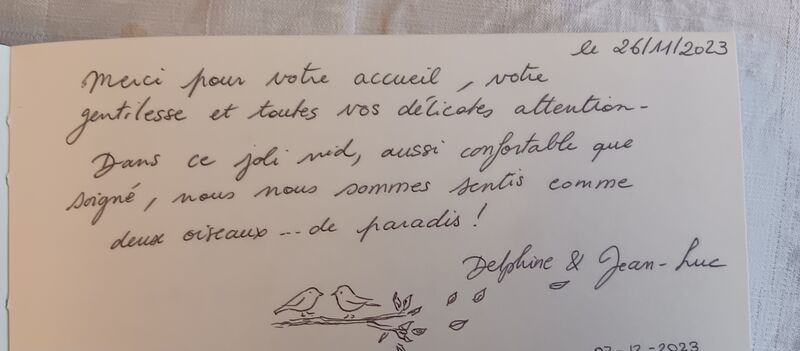 le 26/11/2023
Merci pour votre accueil, votre
gentilesse et toutes vos délicates attention-
Dans ce joli nid, aussi confortable que
soigné, nous nous sommes sentis comme
deux oiseaux... de paradis !
Delphine & Jean-Luc
07-12-2023